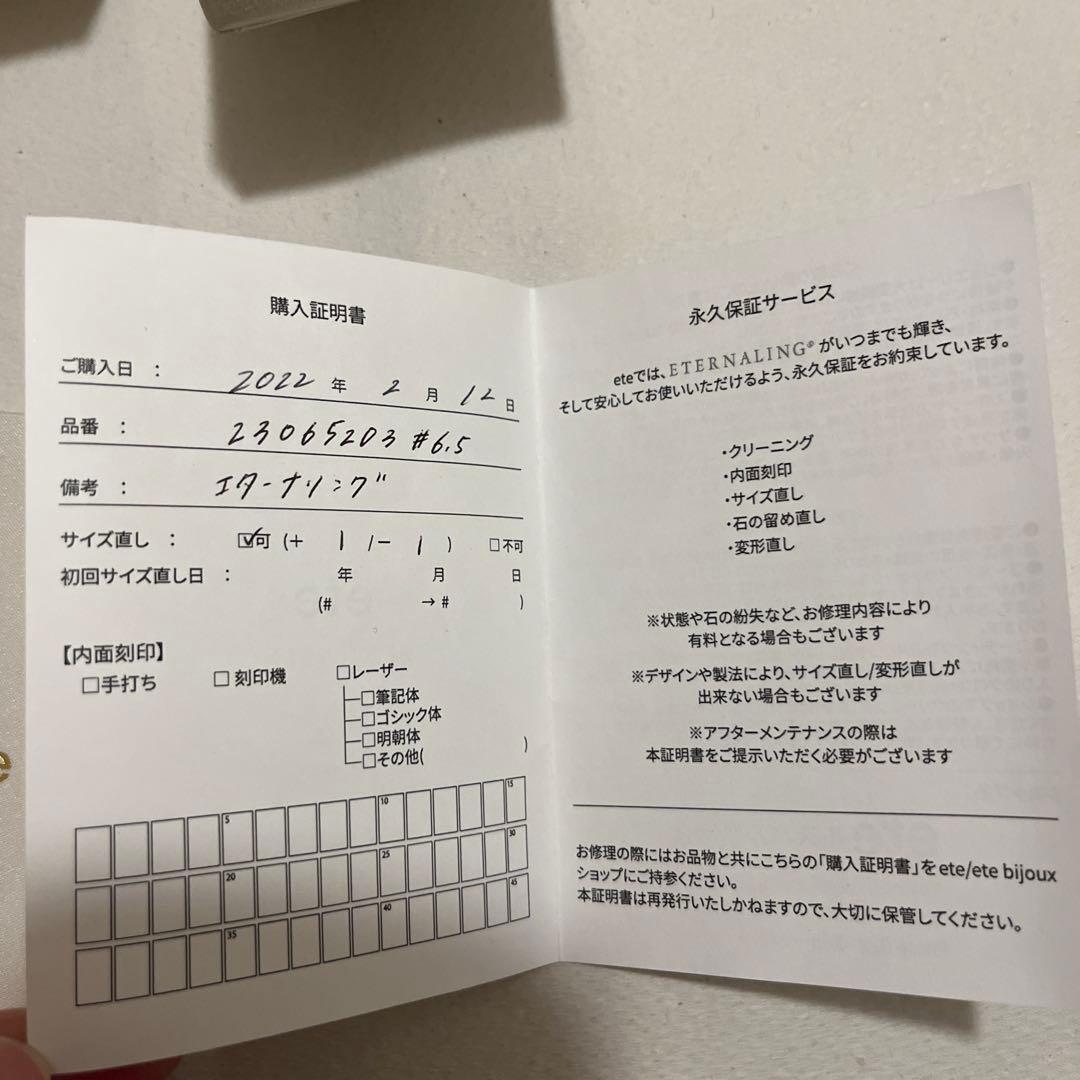 購入証明書
ご購入日 : 2022 年 2 月 12 日
品番 : 23065203 #6.5
備考 : エターナリング
サイズ直し : ☑可 (+ 1 /- 1 ) □不可
初回サイズ直し日 : 年 月 日
(# → # )
【内面刻印】
□手打ち □刻印機 □レーザー
□筆記体
□ゴシック体
□明朝体
□その他( )
5 10 15
20 25 30
35 40 45
永久保証サービス
eteでは、ETERNALING®がいつまでも輝き、
そして安心してお使いいただけるよう、永久保証をお約束しています。
・クリーニング
・内面刻印
・サイズ直し
・石の留め直し
・変形直し
※状態や石の紛失など、お修理内容により
有料となる場合もございます
※デザインや製法により、サイズ直し/変形直しが
出来ない場合もございます
※アフターメンテナンスの際は
本証明書をご提示いただく必要がございます
お修理の際にはお品物と共にこちらの「購入証明書」をete/ete bijoux
ショップにご持参ください。
本証明書は再発行いたしかねますので、大切に保管してください。